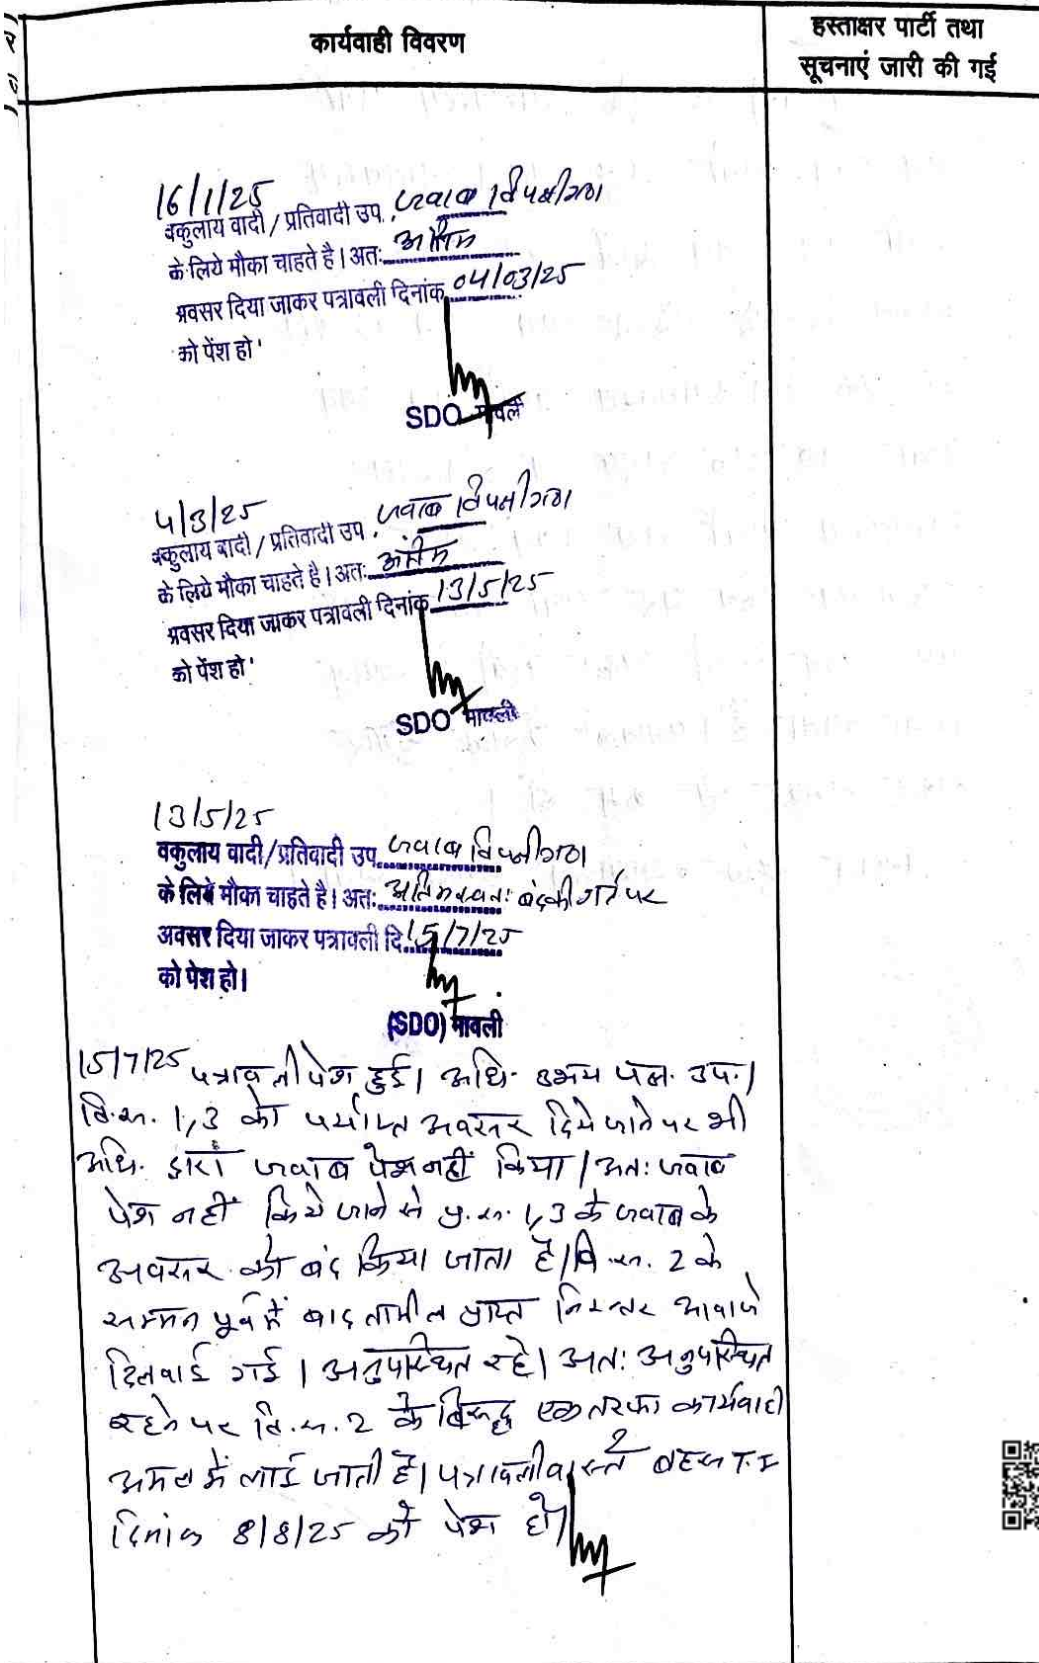 कार्यवाही विवरण
हस्ताक्षर पार्टी तथा
सूचनाएं जारी की गई
16/1/25
वकुलाय वादी / प्रतिवादी उप. जवाब विपक्षीगण
के लिये मौका चाहते है। अतः अंतिम
अवसर दिया जाकर पत्रावली दिनांक 04/03/25
को पेंश हो '
SDO मावली
4/3/25
वकुलाय वादी / प्रतिवादी उप. जवाब विपक्षीगण
के लिये मौका चाहते है। अतः अंतिम
अवसर दिया जाकर पत्रावली दिनांक 13/5/25
को पेंश हो '
SDO मावली
13/5/25
वकुलाय वादी/प्रतिवादी उप. जवाब विपक्षीगण
के लिये मौका चाहते है। अतः अंतिम स्वतः बंद की शर्त पर
अवसर दिया जाकर पत्रावली दि. 15/7/25
को पेश हो।
(SDO) मावली
15/7/25 पत्रावली पेश हुई। अधि. उभय पक्ष. उप.।
वि.सं. 1,3 को पर्याप्त अवसर दिये जाने पर भी
अधि. द्वारा जवाब पेश नहीं किया। अतः जवाब
पेश नहीं किये जाने से प्र.सं. 1,3 के जवाब के
अवसर को बंद किया जाता है। वि.सं. 2 के
सम्मन पूर्व में बाद तामील प्राप्त निरन्तर आवाजे
दिलवाई गई। अनुपस्थित रहे। अतः अनुपस्थित
रहने पर वि.सं. 2 के विरूद्ध एक तरफा कार्यवाही
अमल में लाई जाती है। पत्रावली वास्ते बहस T.I
दिनांक 8/8/25 को पेश हो।